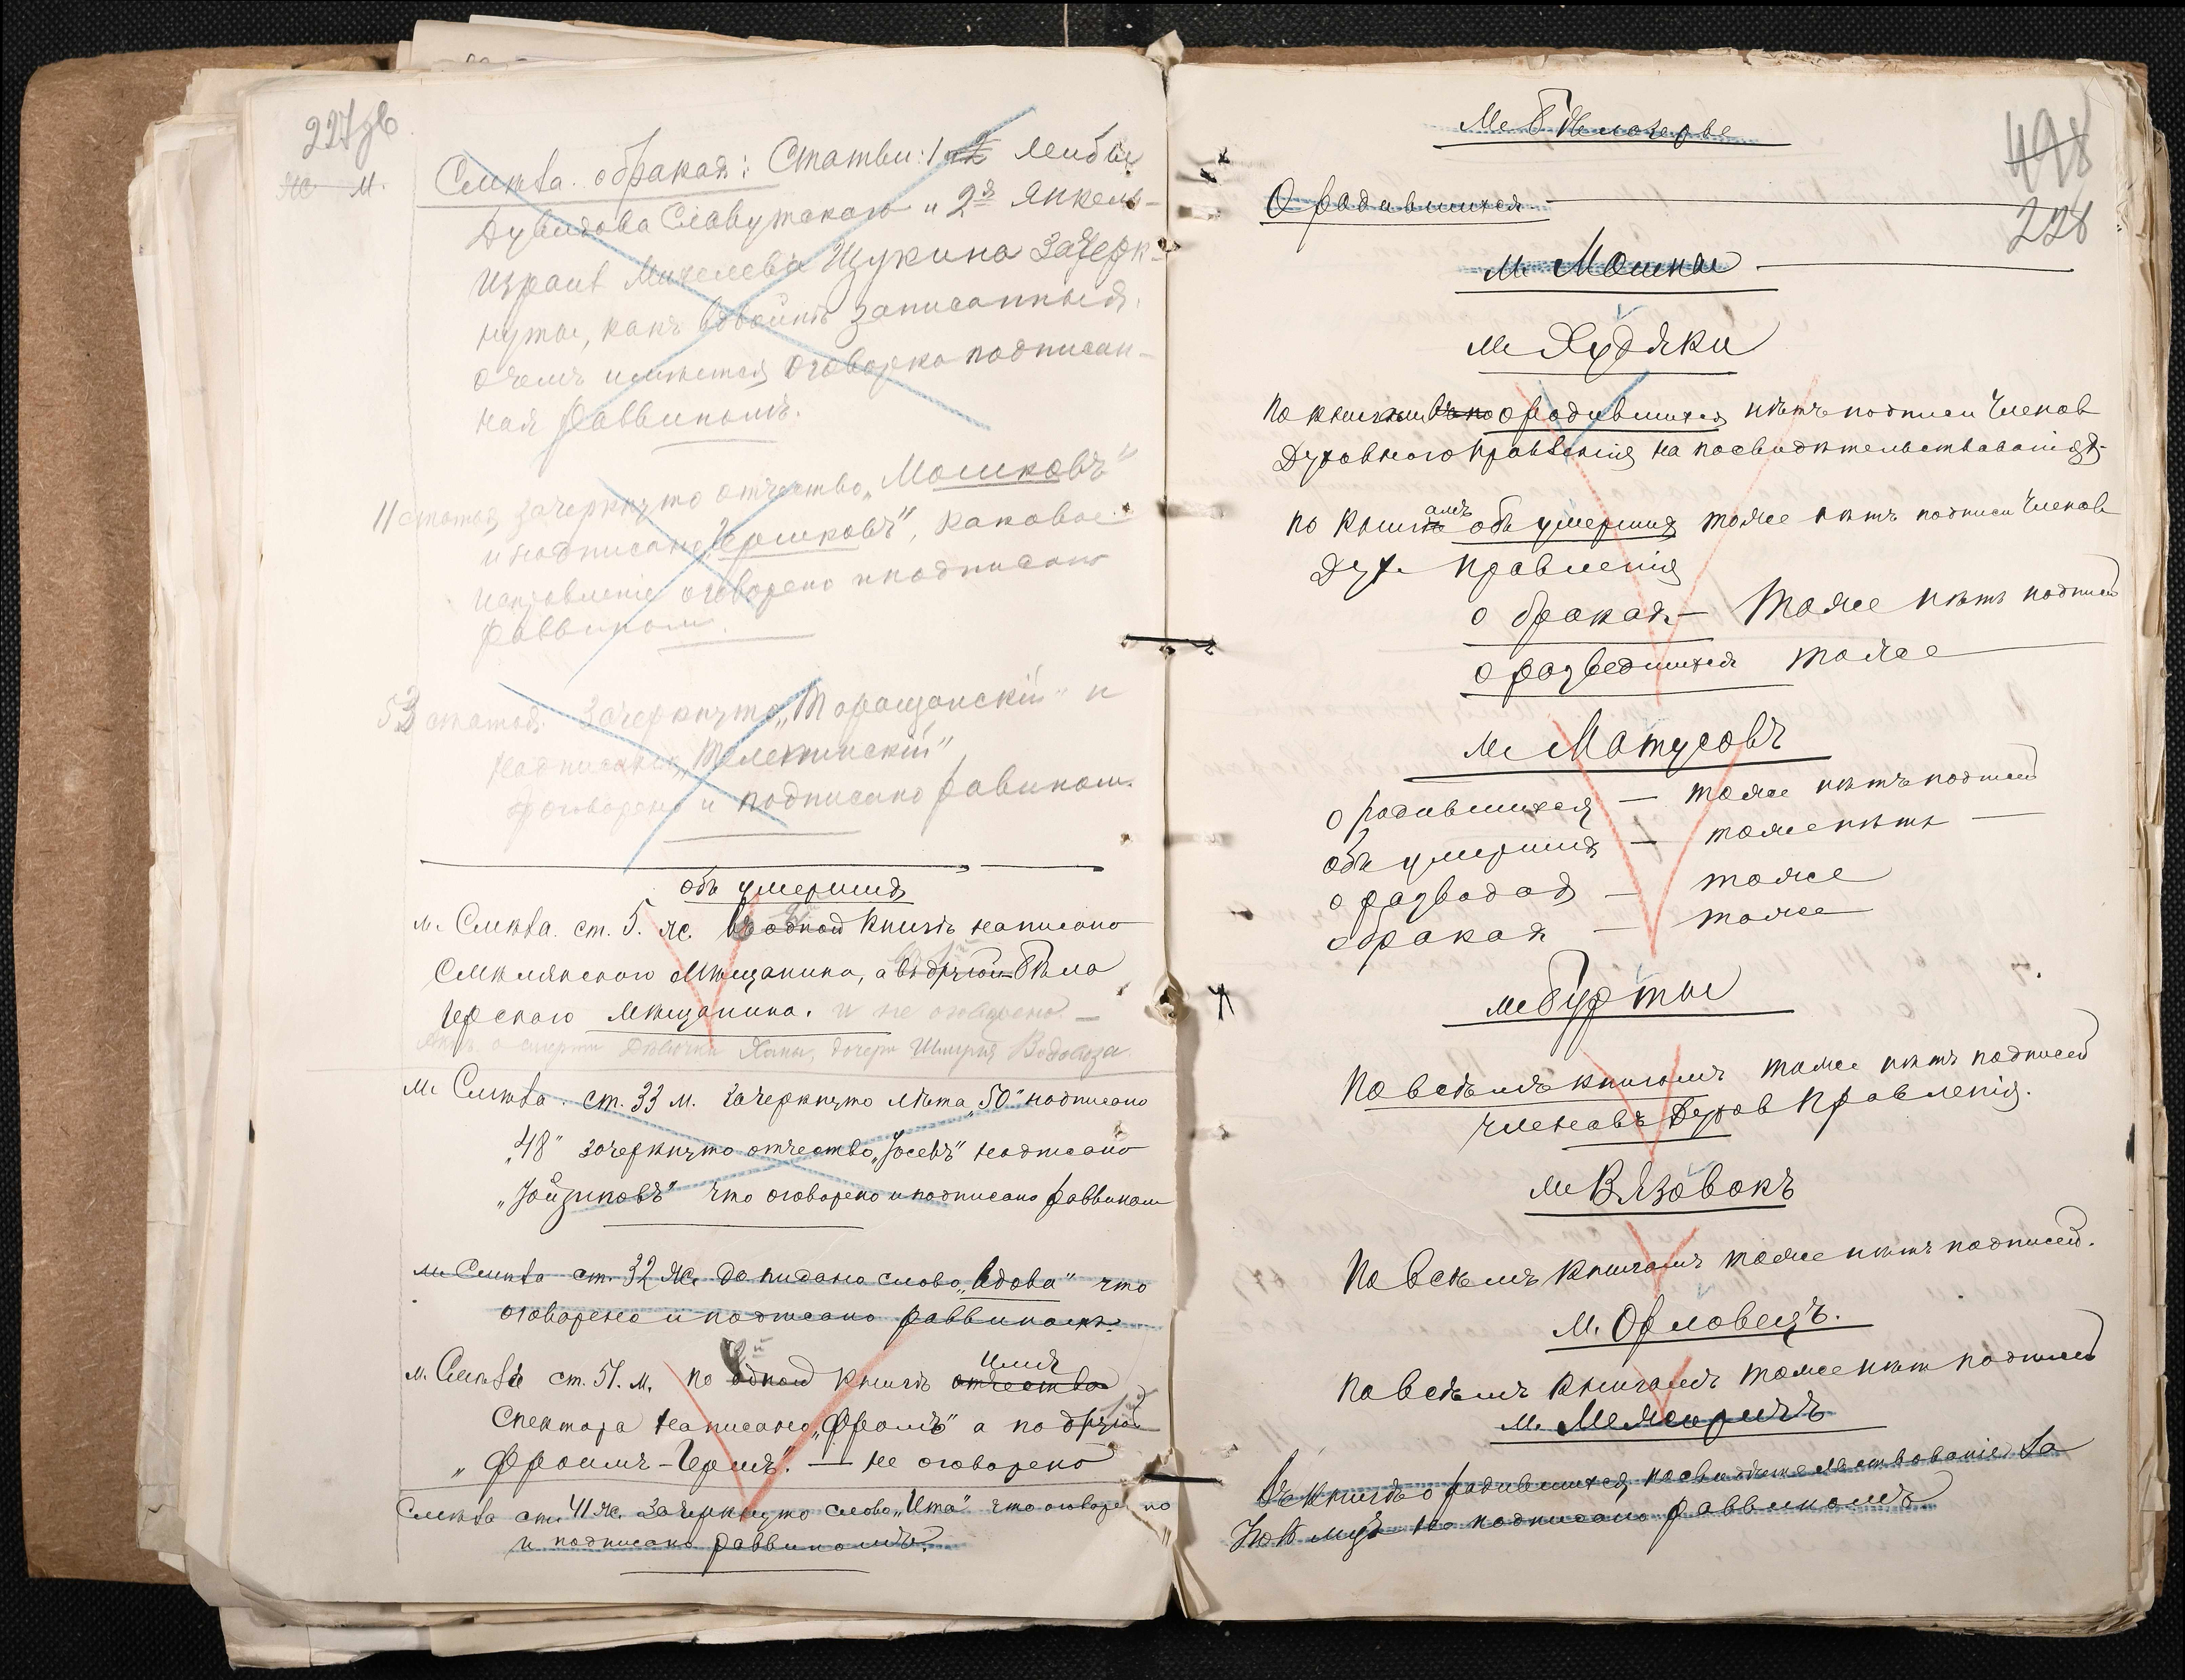 227 об
ж м.
Смѣла. о бракахъ: Статьи: 1 Лейбы
Дувидова Славутскаго и 2я Янкель-
Израиль Михелева Щукина зачерк-
нуты, какъ вдвойнѣ записанныя,
о чемъ имѣется оговорка подписан-
ная раввиномъ.
11 статья зачеркнуто отчество „Мошковъ"
и надписано „Гершковъ", каковое
исправленіе оговорено и подписано
раввином.
53 статья зачеркнуто „Таращанскій" и
надписано
оговорено и подписано равином.
объ умершихъ
м. Смѣла. ст. 5. ж. въ одной книгѣ написано
Смѣлянского мѣщанина, а въ другой Бѣло
церского мѣщанина. и не оговорено —
о смерти дѣвочки Ханы, дочери Шмерия Водовоза
м. Смѣла. ст. 33 м. зачеркнуто лѣта „50" надписано
„48" зачеркнуто отчество „Іосевъ" надписано
что оговорено и подписано раввином
м. Смѣла ст. 32 ж. дописано слово „вдова" что
оговорено и подписано раввиномъ.
м. Смѣла ст. 51. м. по одной книгѣ отчество имя
Спектора написано „Фроимъ" а по другой
„Фроимъ-Герш". — не оговорено
Смѣла ст. 41 ж. зачеркнуто слово „Ита" что оговорено
и подписано раввиномъ.
498
228
М. Бѣлозерье
О родившихся
м. Мошны
м. Худяки
по книгам о родившихся нѣтъ подписи членов
Духовного правленія на посвидѣтельствованіях
по книгамъ объ умерших тоже нѣтъ подписи членов
Дух. правленія
о бракахъ — тоже нѣтъ подписей
о разведшихся тоже
м. Матусовъ
о родившихся — тоже нѣтъ подписей
объ умерших — тоже нѣтъ —
о разводах — тоже
о браках — тоже
м. Бурты
По всѣмъ книгамъ тоже нѣтъ подписей
членовъ Духов правленія.
м. Вязовокъ
По всѣмъ книгамъ тоже нѣтъ подписей.
м. Орловецъ.
по всѣмъ книгамъ тоже нѣтъ подписей
м. Межиричъ
Въ книгѣ о родившихся посвидѣтельствованіе за
не подписано раввиномъ